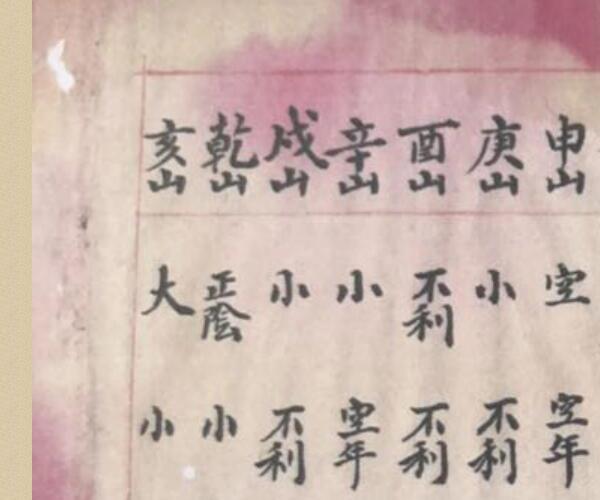 申山 庚山 酉山 辛山 戌山 乾山 亥山
空 小 不利 小 小 正陰 大
空年 不利 不利 空年 不利 小 小